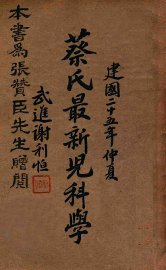 建國二十五年仲夏
蔡氏最新兒科學
武進謝利恒
本書為張贊臣先生贈閱